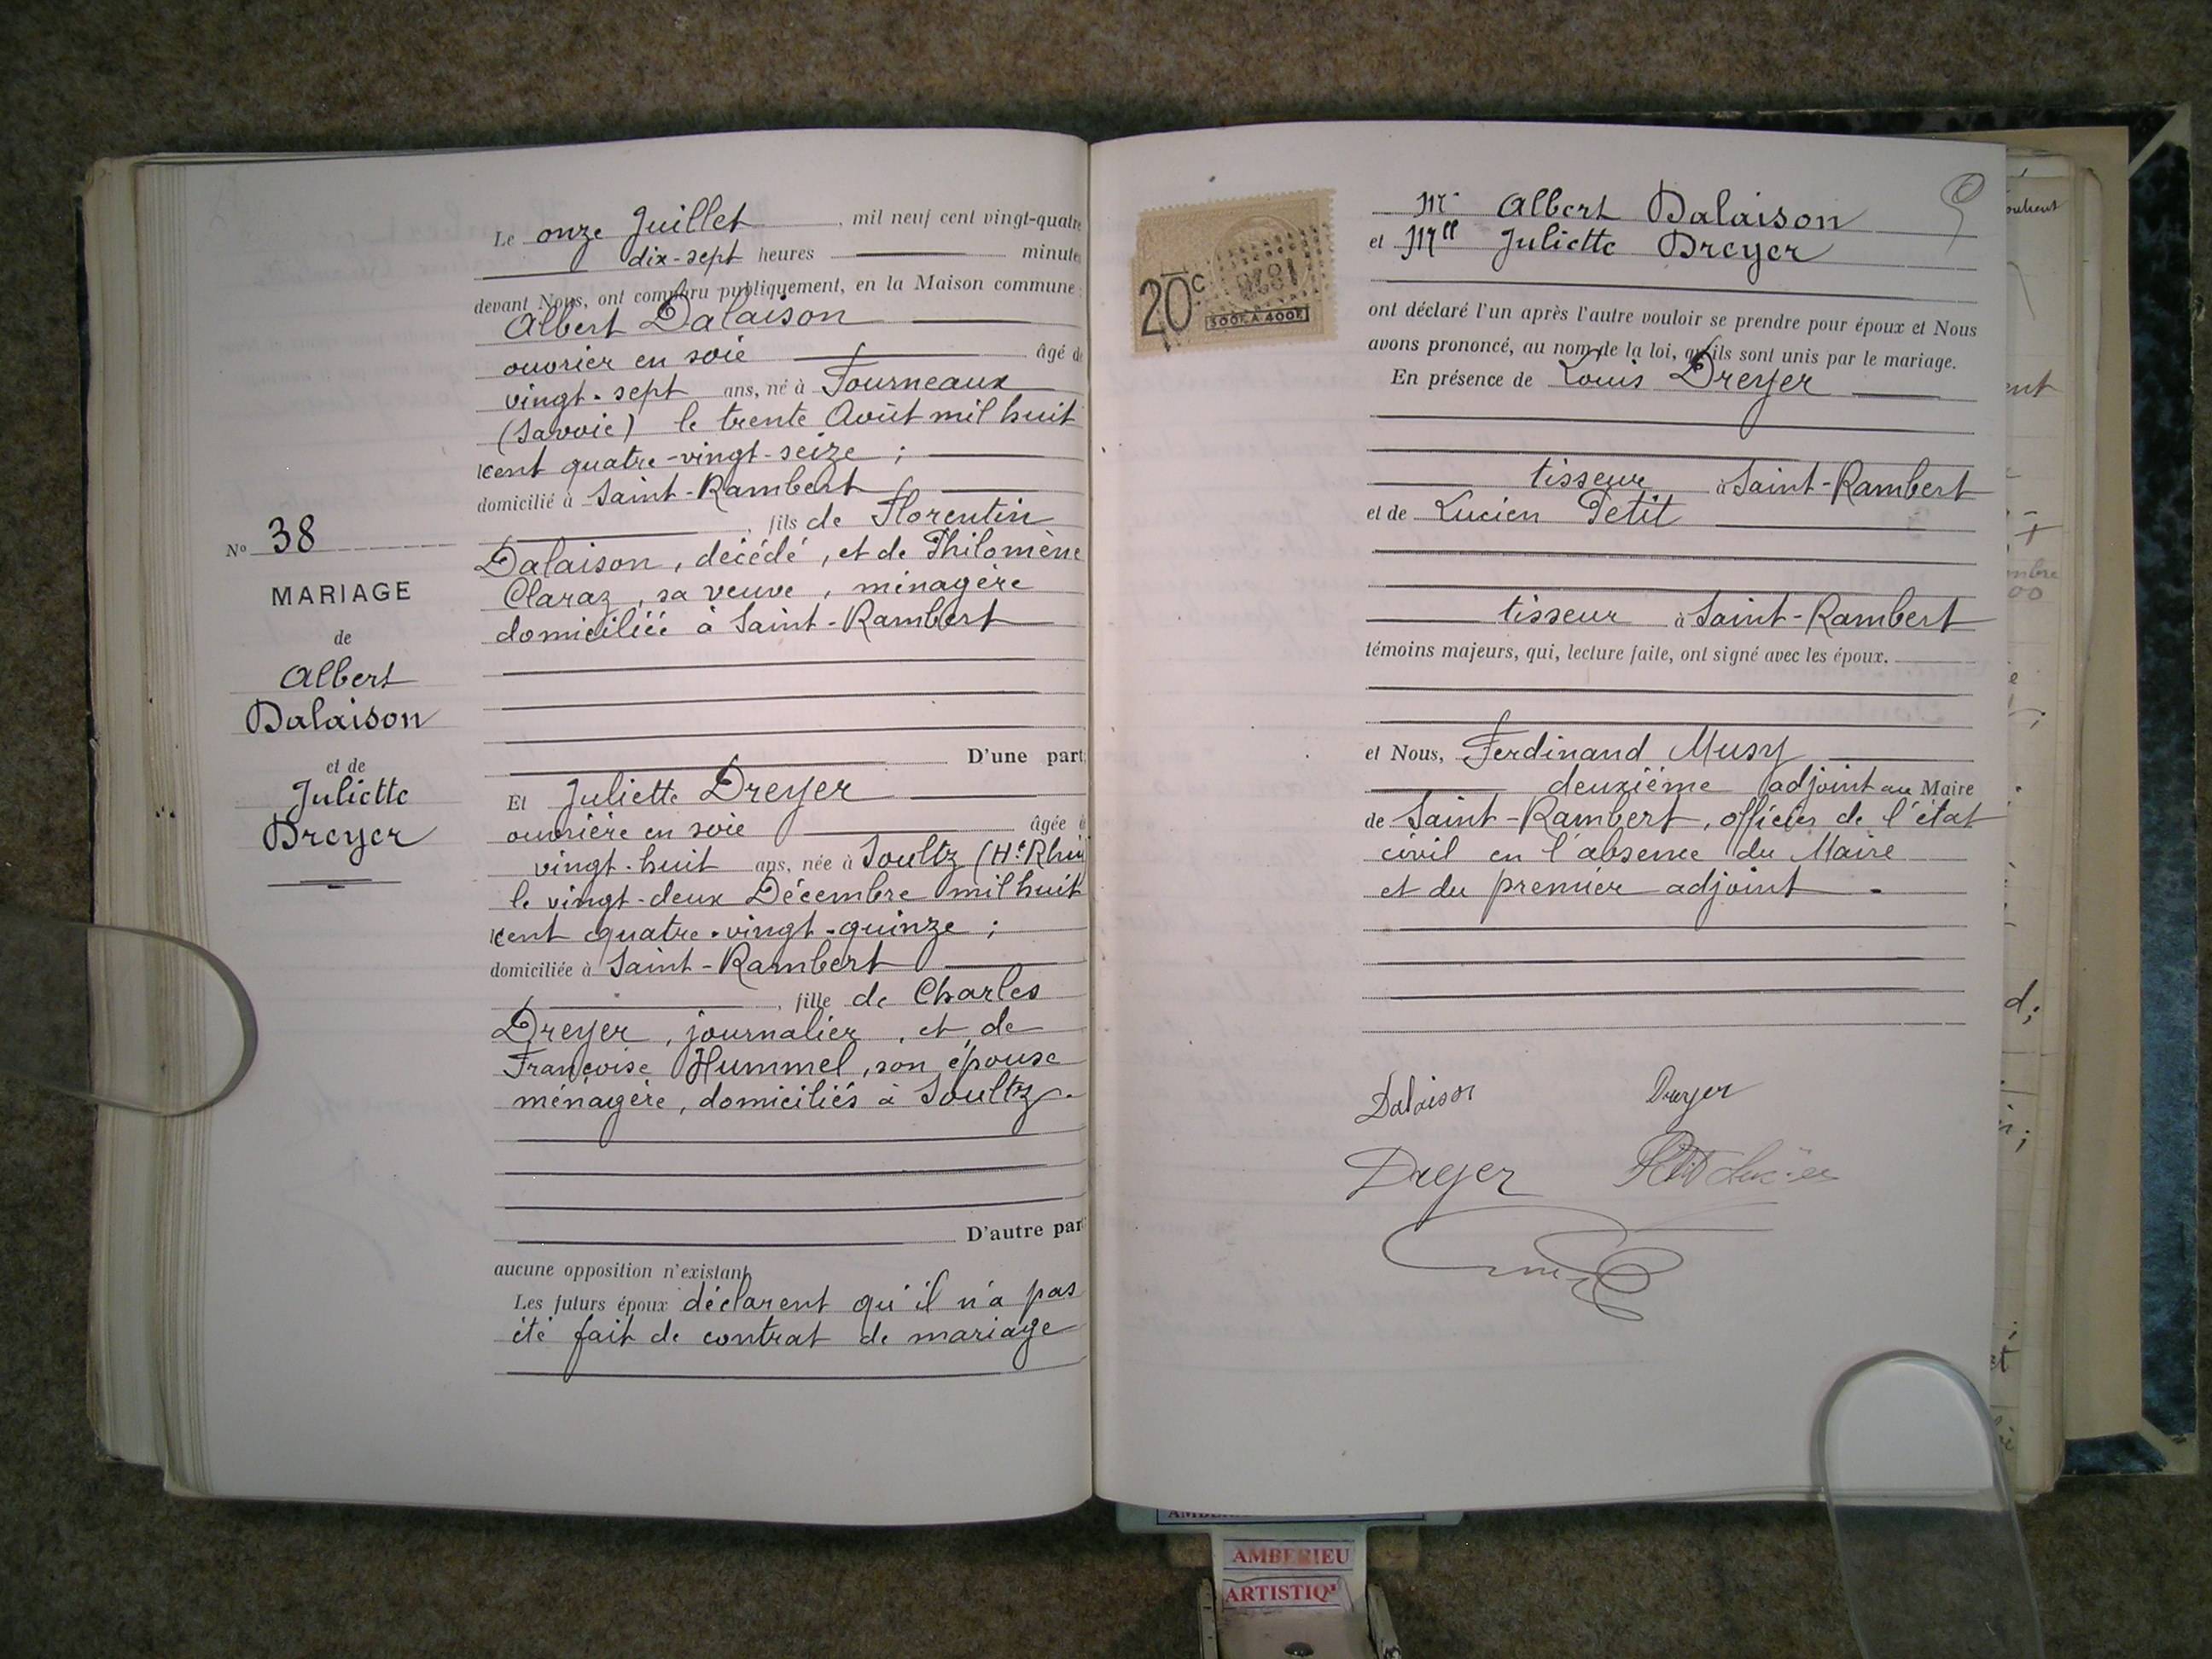 Le onze Juillet, mil neuf cent vingt-quatre
dix-sept heures minute
devant Nous, ont comparu publiquement, en la Maison commune :
Albert Dalaison
ouvrier en soie âgé d
vingt-sept ans, né à Fourneaux
(Savoie) le trente Août mil huit
cent quatre-vingt-seize ;
domicilié à Saint-Rambert
, fils de Florentin
Dalaison, décédé, et de Philomène
Claraz, sa veuve, ménagère
domiciliée à Saint-Rambert
D'une part
N° 38
MARIAGE
de
Albert
Dalaison
et de
Juliette
Dreyer
Et Juliette Dreyer
ouvrière en soie âgée
vingt-huit ans, née à Soultz (Ht Rhin
le vingt-deux Décembre mil huit
cent quatre-vingt-quinze ;
domiciliée à Saint-Rambert
, fille de Charles
Dreyer, journalier, et de
Françoise Hummel, son épouse
ménagère, domiciliés à Soultz.
D'autre par
aucune opposition n'existant
Les futurs époux déclarent qu'il n'a pas
été fait de contrat de mariage
20c
300F A 400F
Mr Albert Dalaison
et Mlle Juliette Dreyer
ont déclaré l'un après l'autre vouloir se prendre pour époux et Nous
avons prononcé, au nom de la loi, qu'ils sont unis par le mariage.
En présence de Louis Dreyer
tisseur à Saint-Rambert
et de Lucien Petit
tisseur à Saint-Rambert
témoins majeurs, qui, lecture faite, ont signé avec les époux.
et Nous, Ferdinand Musy
deuxième adjoint au Maire
de Saint-Rambert, officier de l'état
civil en l'absence du Maire
et du premier adjoint.
Dalaison Dreyer
Dreyer Petit Lucien
AMBERIEU
ARTISTIQ